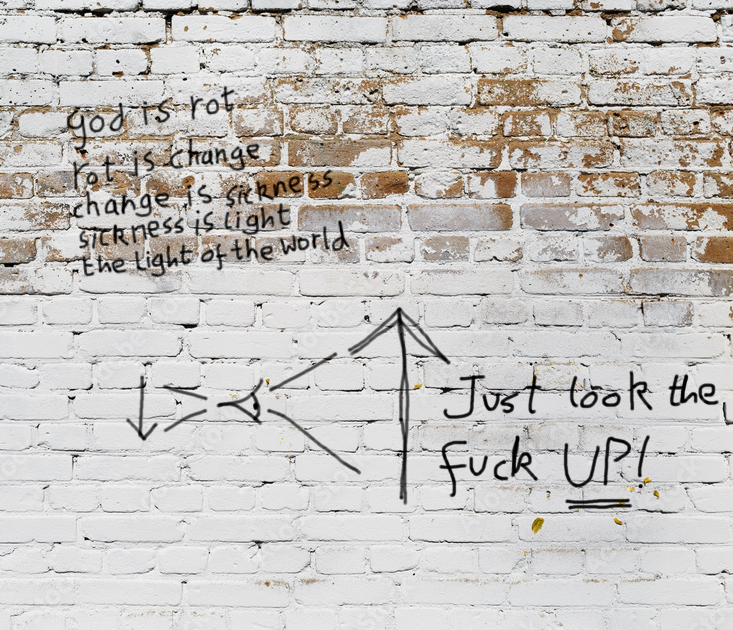 god is rot
rot is change
change is sickness
sickness is light
the light of the world
Just look the
fuck UP!